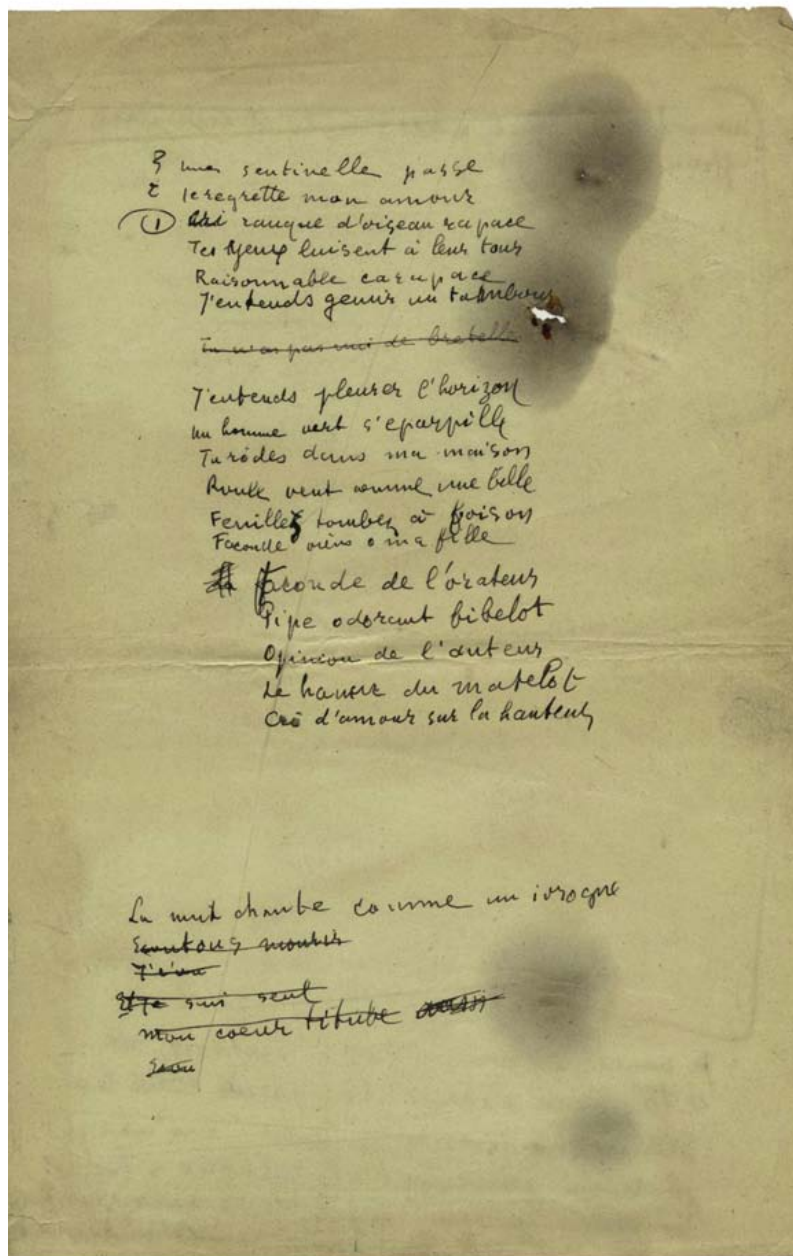 3 une sentinelle passe
2 Je regrette mon amour
1 Cri rauque d'oiseau rapace
Tes yeux luisent à leur tour
Raisonnable carapace
J'entends gemir un tambour
Tu n'as pas de bretelle
J'entends pleurer l'horizon
un homme vert s'eparpille
Tu rôdes dans ma maison
Roule vent comme une bille
Feuilles tombez à foison
Faconde viens o ma fille
La faconde de l'orateur
Pipe odorant bibelot
Opinion de l'auteur
Le hamac du matelot
Cri d'amour sur la hauteur
La nuit chante comme un ivrogne
Ecoutons mourir
J'ai
Et je suis seul
mon coeur titube aussi